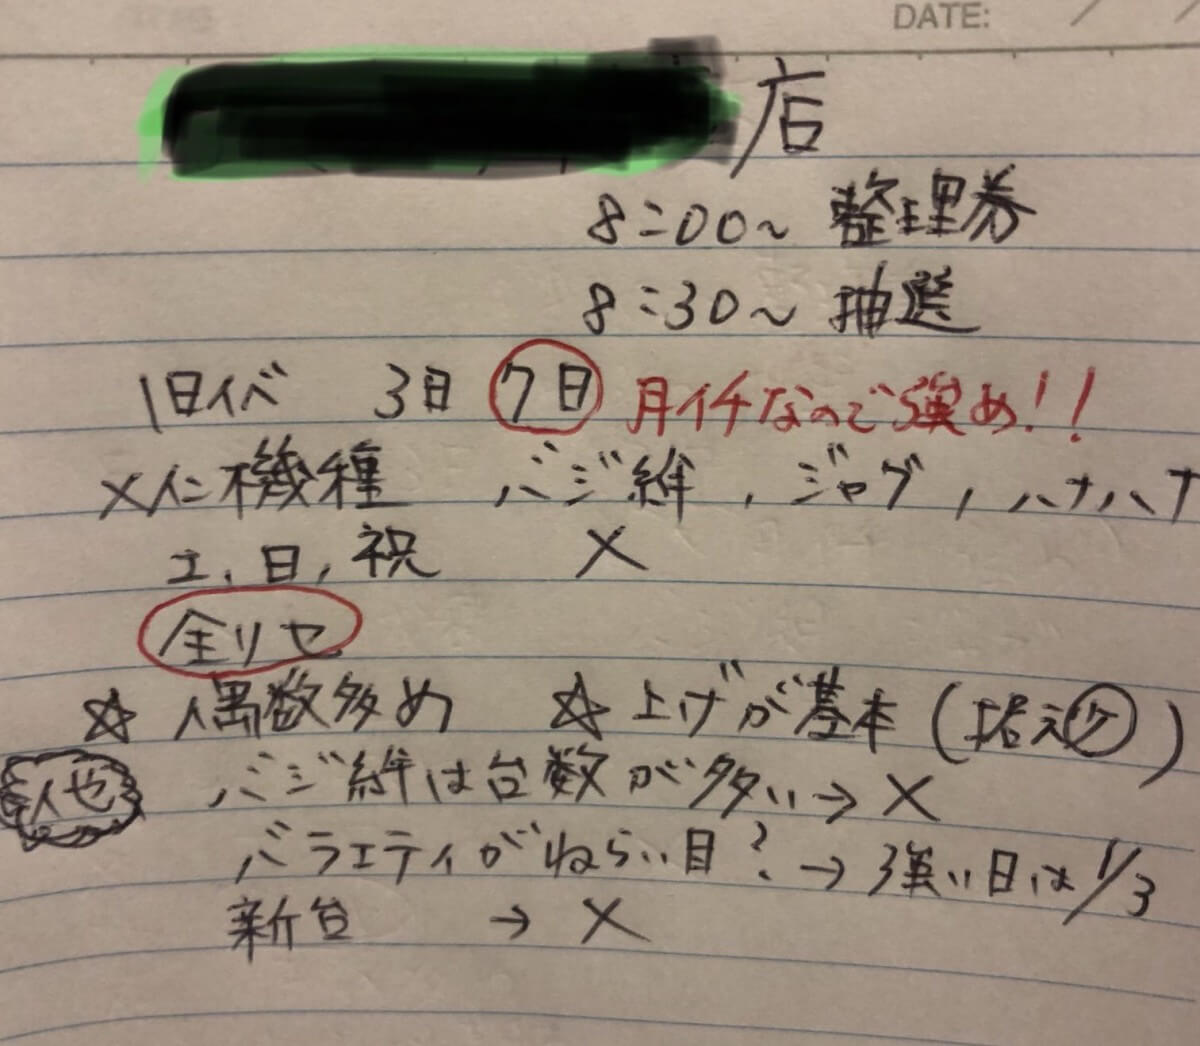 DATE:
店
8:00〜 整理券
8:30〜 抽選
旧イベ 3日 7日 月イチなので強め!!
メイン機種 バジ絆, ジャグ, ハナハナ
土, 日, 祝 ×
全リセ
☆ 偶数多め ☆ 上げが基本 (据え ケ)
バジ絆は台数が多い→×
バラエティがねらい目? → 強い日は1/3
新台 → ×